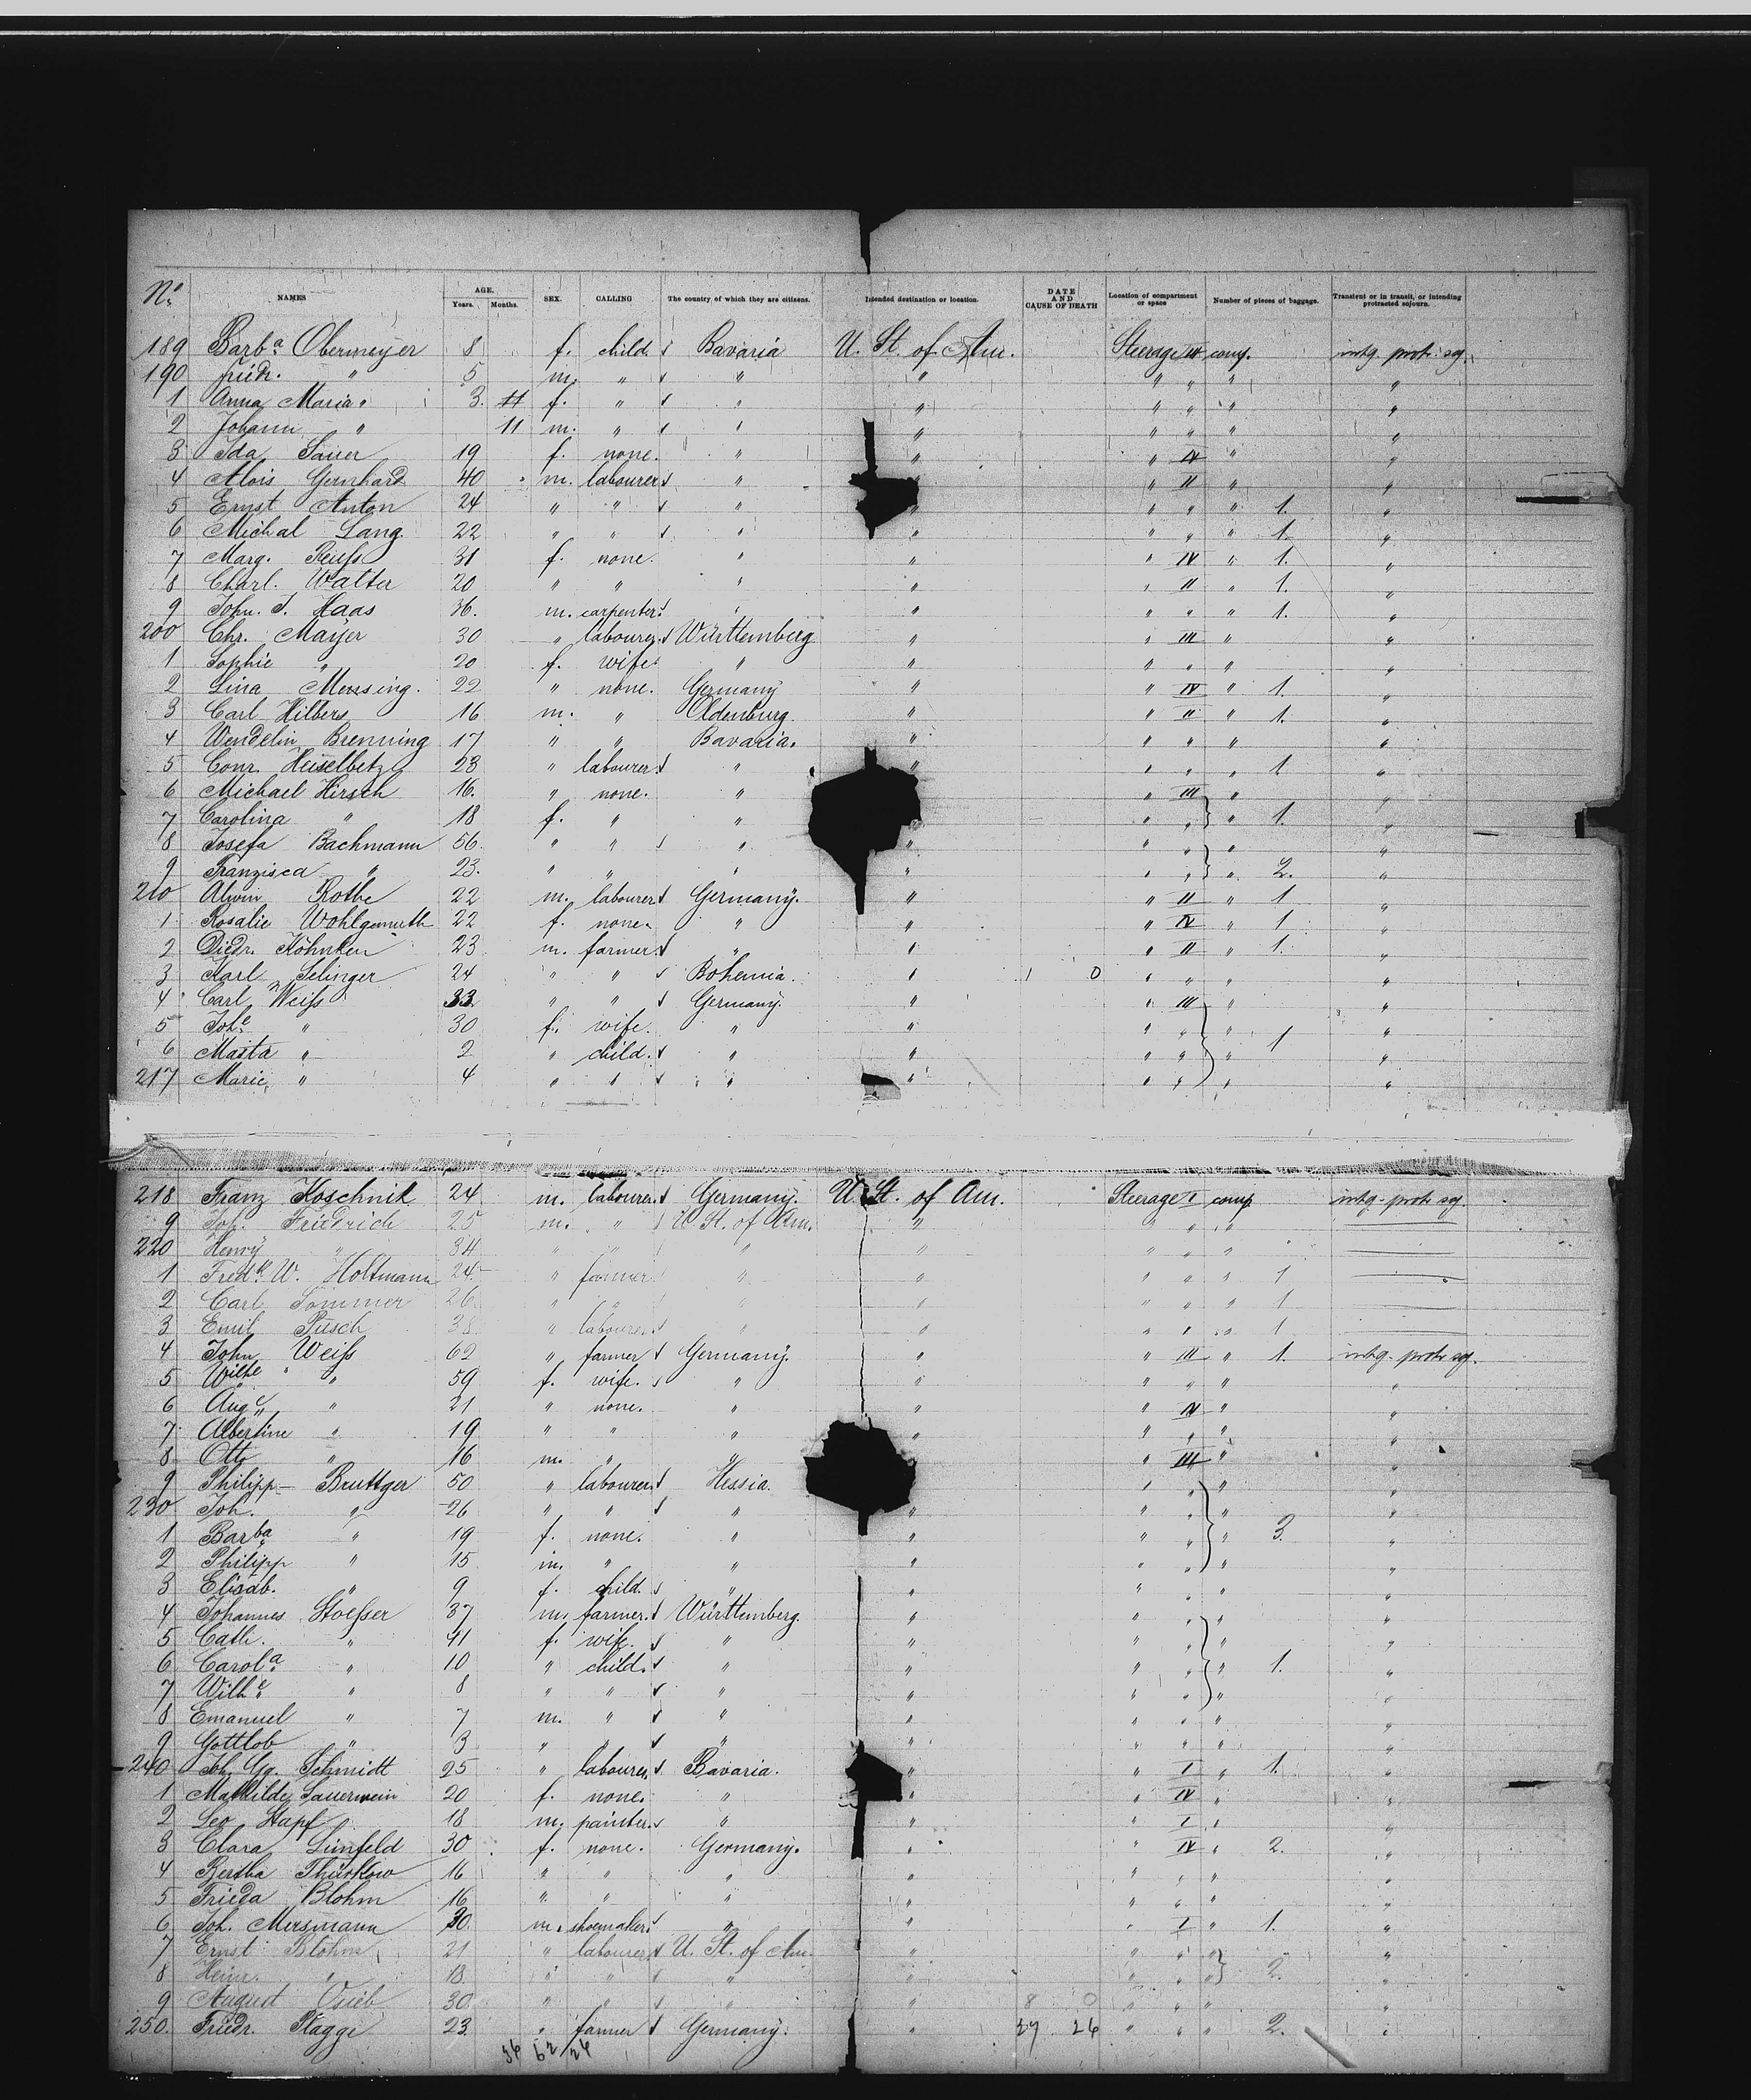 No. NAMES AGE, Years. Months. SEX. CALLING The country of which they are citizens. Intended destination or location. DATE AND CAUSE OF DEATH Location of compartment or space Number of pieces of baggage. Transient or in transit, or intending protracted sojourn.
189 Barba. Obermeyer 8 f. child. Bavaria U. St. of Am. Steerage III comp. intg. protr. soj.
190 Friedr. " 5 m. " " " " " " "
1 Anna Maria " 3. 11 f. " " " " " " "
2 Johann " 11 m. " " " " " " "
3 Ida Sauer 19 f. none. " " " IV " "
4 Alois Gernhard 40 m. labourer " " " II " "
5 Ernst Anton 24 " " " " " " " 1. "
6 Michal Lang 22 " " " " " " " 1. "
7 Marg. Reuß 31 f. none. " " " IV " 1. "
8 Charl. Walter 20 " " " " " II " 1. "
9 John. J. Haas 36. m. carpenter " " " " " 1. "
200 Chr. Mayer 30 " labourer Württemberg " " III " "
1 Sophie " 20 f. wife " " " " " "
2 Lina Messing. 22 " none. Germany " " IV " 1. "
3 Carl Hilbers 16 m. " Oldenburg. " " II " 1. "
4 Wendelin Brenning 17 " " Bavaria. " " " " "
5 Conr. Heiselbetz 23 " labourer " " " " " 1. "
6 Michael Hirsch 16. " none. " " III " "
7 Carolina " 18 f. " " " " " 1. "
8 Josefa Bachmann 56. " " " " " " " "
9 Franzisca " 23. " " " " " " " 2. "
210 Alwin Rothe 22 m. labourer Germany. " " II " 1 "
1 Rosalie Wohlgemuth 22 f. none. " " " IV " 1 "
2 Diedr. Köhnken 23 m. farmer " " " II " 1. "
3 Karl Selinger 24 " " Bohemia. " 1 0 " " " "
4 Carl Weiß 33 " " Germany. " " III " "
5 Johe. " 30 f. wife. " " " " " 1 "
6 Marta " 2 " child. " " " " " "
217 Marie, " 4 " " " " " " " "
218 Franz Koschnik 24 m. labourer Germany. U. St. of Am. Steerage I comp. intg. protr. soj.
9 Joh. Friedrich 25 m. " U. St. of Am. " " " "
220 Henry " 34 " " " " " " "
1 Fredk. W. Holtmann 24 " farmer " " " " " 1
2 Carl Sommer 26. " " " " " " " 1
3 Emil Pusch 38 " labourer " " " " " 1
4 John Weiß 62 " farmer Germany. " " III " 1. intg. protr. soj.
5 Wilhe " 59 f. wife. " " " " " "
6 Auge " 21 " none. " " " IV " "
7 Albertine " 19 " " " " " " " "
8 Otto " 16 m. " " " III " "
9 Philipp Bruttger 50 " labourer Hessia. " " " "
230 Joh. " 26 " " " " " " " "
1 Barba " 19 f. none. " " " " 3. "
2 Philipp " 15 m. " " " " " " "
3 Elisab. " 9 f. child. " " " " "
4 Johannes Stoeßer 37 m. farmer. Württemberg. " " " " "
5 Cath. " 41 f. wife. " " " " " "
6 Carola. " 10 " child. " " " " " 1. "
7 Wilhe. " 8 " " " " " " " "
8 Emanuel " 7 m. " " " " " " "
9 Gottlob " 3 " " " " " " " "
240 Joh. Gg. Schmidt 25 " labourer Bavaria. " " I " 1. "
1 Mathilde Sauerwein 20 f. none. " " " IV " "
2 Leo Hapf 18 m. painter " " " I " "
3 Clara Linfeld 30 f. none. Germany. " " IV " 2. "
4 Bertha Thürkow 16 " " " " " " " "
5 Frieda Blohm 16 " " " " " " " "
6 Joh. Mersmann 30 m. shoemaker " " " I " 1. "
7 Ernst Blohm 21 " labourer U. St. of Am. " " " " "
8 Heinr. " 18 " " " " " " " 2. "
9 August 30 " " " " 8 0 " " " "
250. Friedr. Plagge 23 " farmer Germany. " 27 26 " " " 2. "
36 62 26